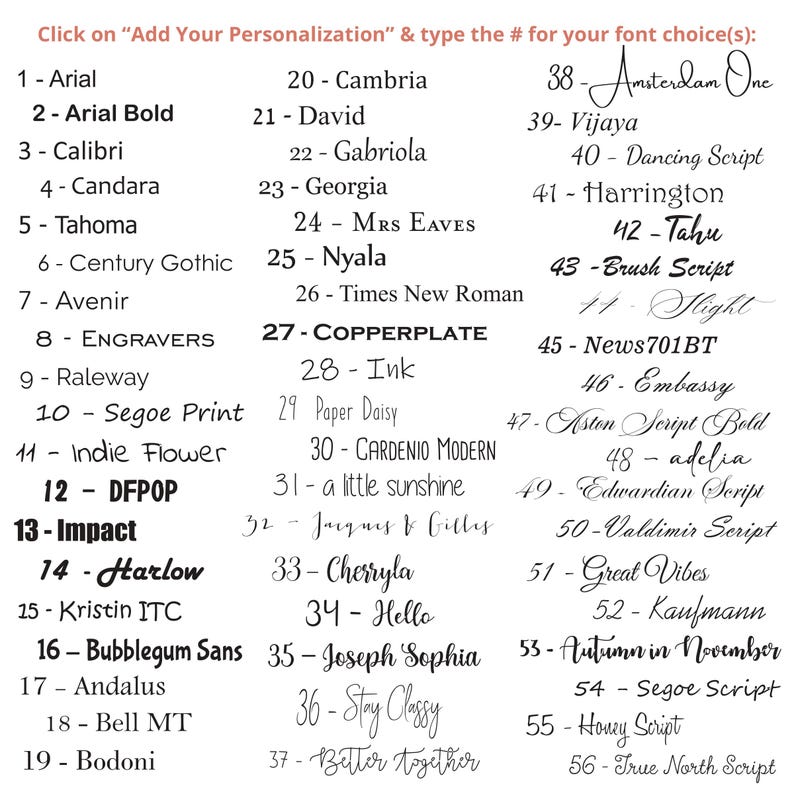 Click on “Add Your Personalization” & type the # for your font choice(s):
1 - Arial
2 - Arial Bold
3 - Calibri
4 - Candara
5 - Tahoma
6 - Century Gothic
7 - Avenir
8 - Engravers
9 - Raleway
10 - Segoe Print
11 - Indie Flower
12 - DFPOP
13 - Impact
14 - Harlow
15 - Kristin ITC
16 – Bubblegum Sans
17 – Andalus
18 - Bell MT
19 - Bodoni
20 - Cambria
21 - David
22 - Gabriola
23 - Georgia
24 - Mrs Eaves
25 - Nyala
26 - Times New Roman
27 - Copperplate
28 - Ink
29 Paper Daisy
30 - Cardenio Modern
31 - a little sunshine
32 - Jacques & Gilles
33 – Cherryla
34 - Hello
35 – Joseph Sophia
36 - Stay Classy
37 - Better Together
38 - Amsterdam One
39- Vijaya
40 - Dancing Script
41 - Harrington
42 - Tahu
43 - Brush Script
44 - Slight
45 - News701BT
46 - Embassy
47 - Aston Script Bold
48 - adelia
49 - Edwardian Script
50 - Valdimir Script
51 - Great Vibes
52 - Kaufmann
53 - Autumn in November
54 - Segoe Script
55 - Honey Script
56 - True North Script